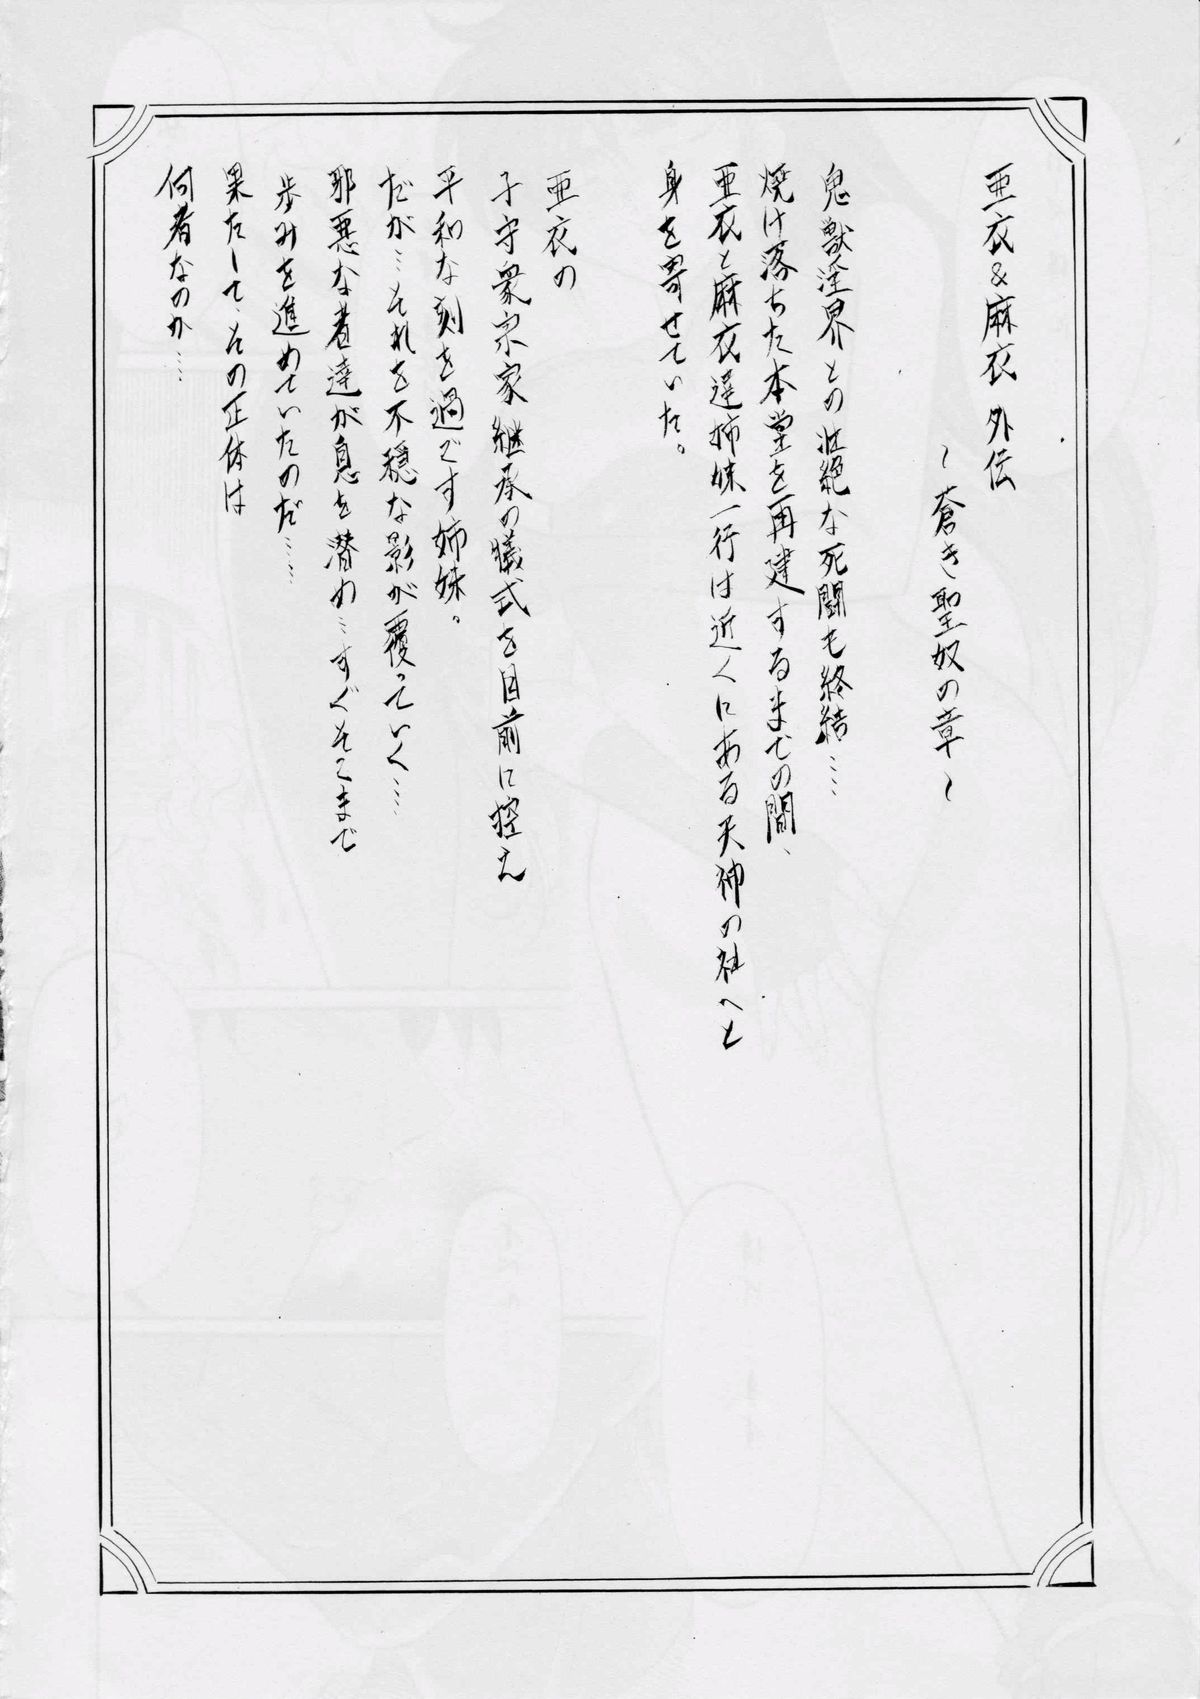 亜衣&麻衣 外伝
~蒼き聖奴の章~
鬼獣淫界との壮絶な死闘も終結‥‥
焼け落ちた本堂を再建するまでの間、
亜衣と麻衣達姉妹一行は近くにある天神の社へと
身を寄せていた。
亜衣の
子守衆宗家継承の儀式を目前に控え
平和な刻を過ごす姉妹。
だが‥それを不穏な影が覆っていく‥‥
邪悪な者達が息を潜め‥すぐそこまで
歩みを進めていたのだ‥‥‥
果たして、その正体は
何者なのか‥‥